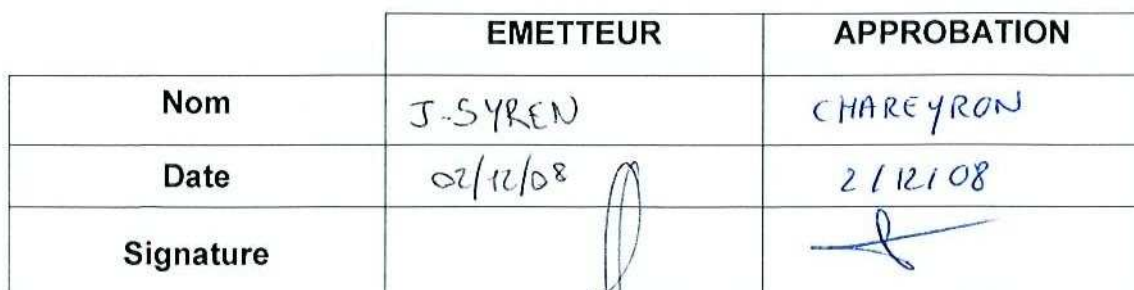 EMETTEUR APPROBATION
Nom J.SYREN CHAREYRON
Date 02/12/08 2/12/08
Signature